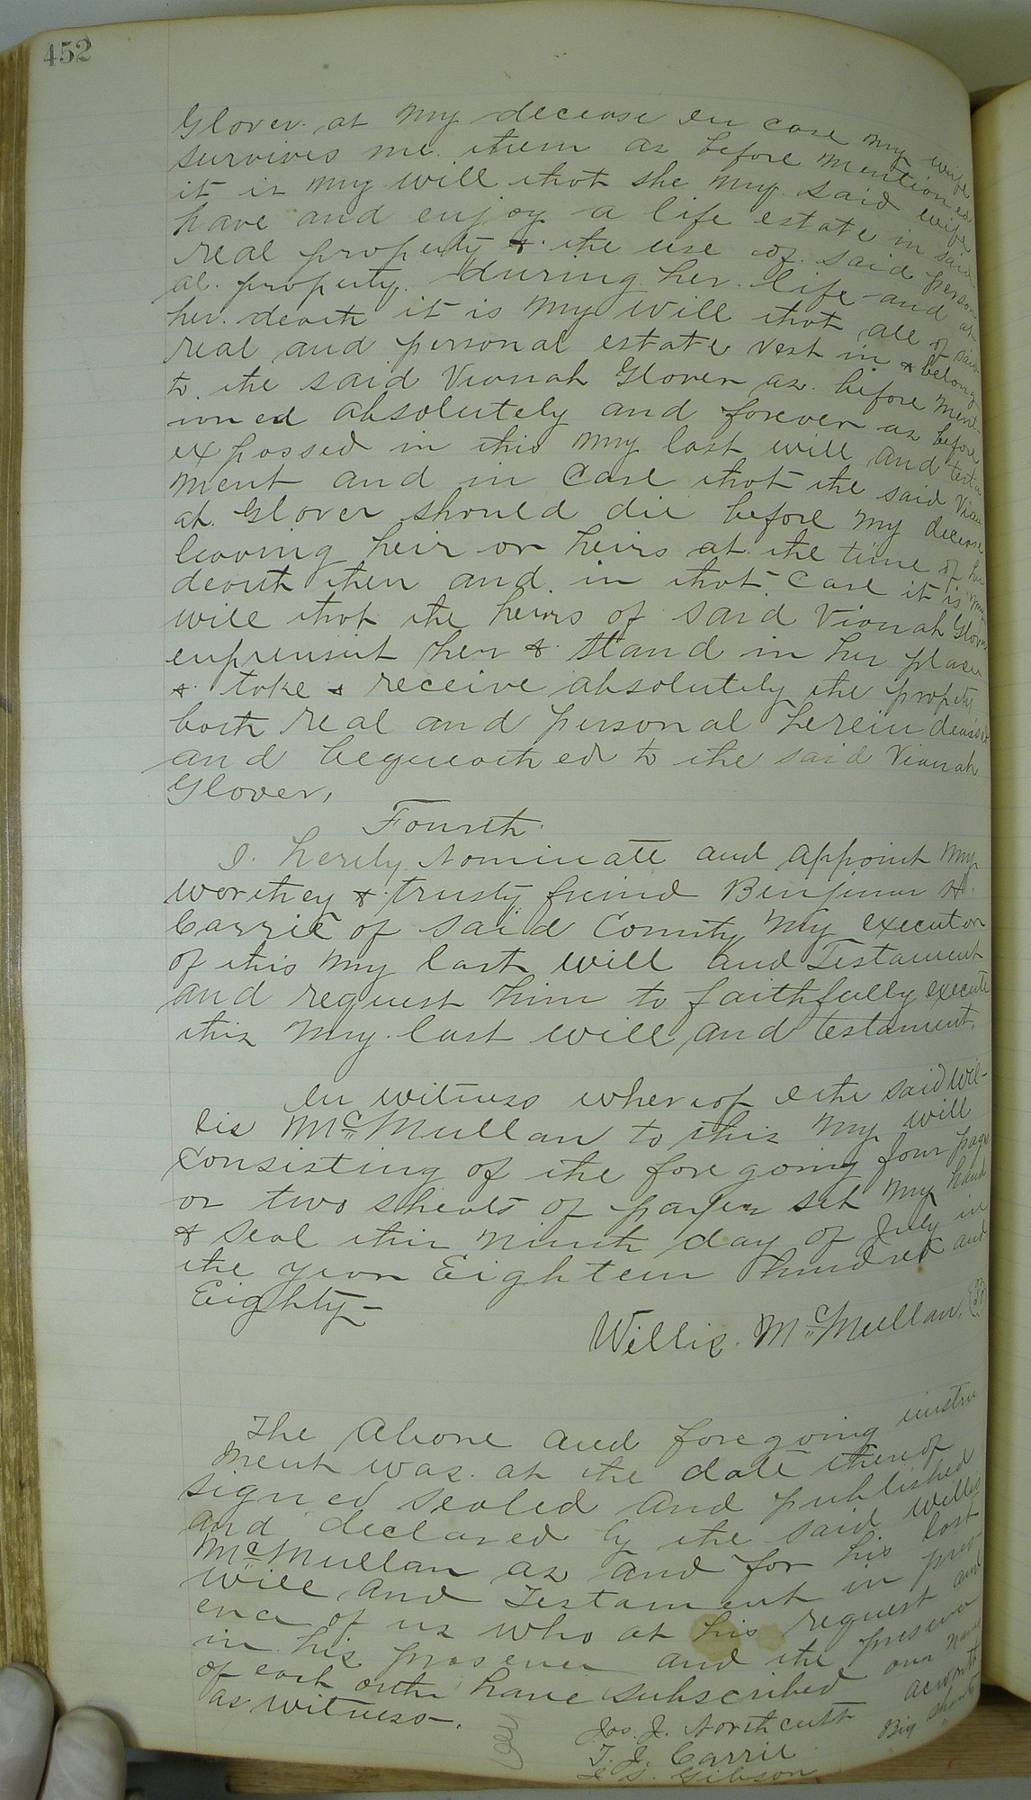 452
Glover at my decease in case my wife
survives me. them as before mentioned
it is my will that she my said wife
have and enjoy a life estate in said
real property & the use of said person
al property during her life and at
her death it is my will that all of said
real and personal estate vest in & belong
to the said Vianah Glover as before ment
ioned absolutely and forever as before
expossed in this my last will and testa
ment and in case that the said Vian
ah Glover should die before my decease
leaving heir or heirs at the time of her
death then and in that case it is my
will that the heirs of said Vianah Glover
enprensent her & stand in her place
& take & receive absolutely the property
both real and personal herein devised
and bequeathed to the said Vianah
Glover,
Fourth
I hereby Nominate and appoint my
worthey & trusty freind Benjimin H.
Carrie of said County my executor
of this my last will and Testament
and request him to faithfully execute
this my last will and testament.
In witness whereof I the said Wil-
lis McMullan to this my will
consisting of the foregoing four pages
or two sheats of paper set my hand
& seal this ninth day of July in
the year Eighteen hundred and
Eighty-
Willis McMullan
The Above and foregoing instru
ment was at the date thereof
signed sealed and published
and declared by the said Willis
McMullan as and for his last
will and Testament in pres
enc of us who at his request and
in his presence and the presence
of each other have subscribed our names
as witness.
Jas. J. Northcutt Acworth
T. J. Carrie Big
Gibson